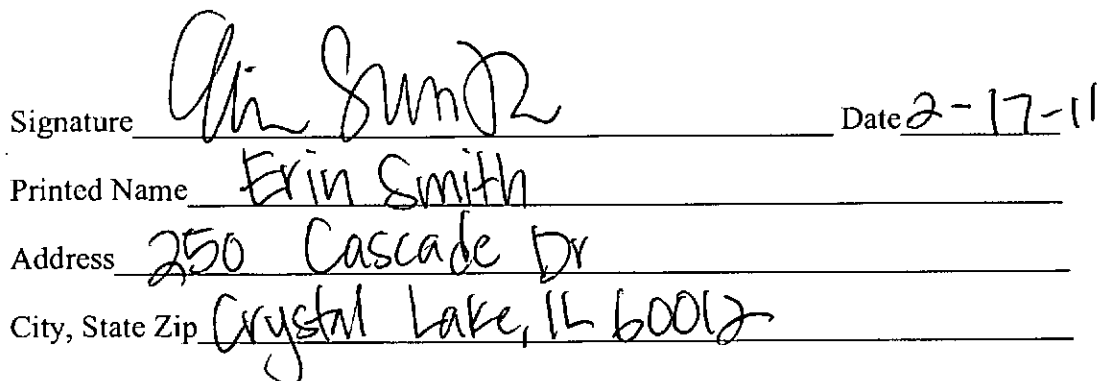 Signature Erin Smith Date 2-17-11
Printed Name Erin Smith
Address 250 Cascade Dr
City, State Zip Crystal Lake, IL 60012